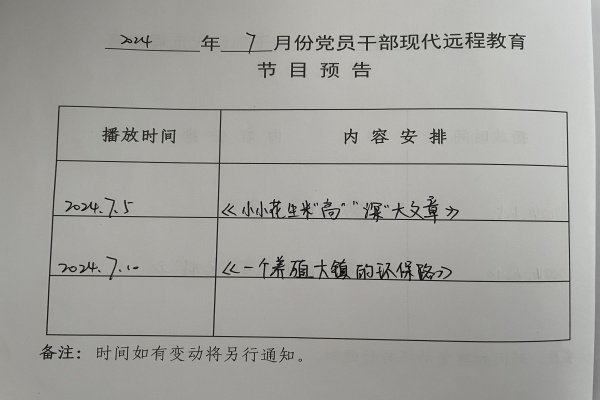 2024 年 7 月份党员干部现代远程教育
节目预告
播放时间 内容安排
2024.7.5 《小小花生米"高""深"大文章》
2024.7.10 《一个养殖大镇的环保路》
备注：时间如有变动将另行通知。